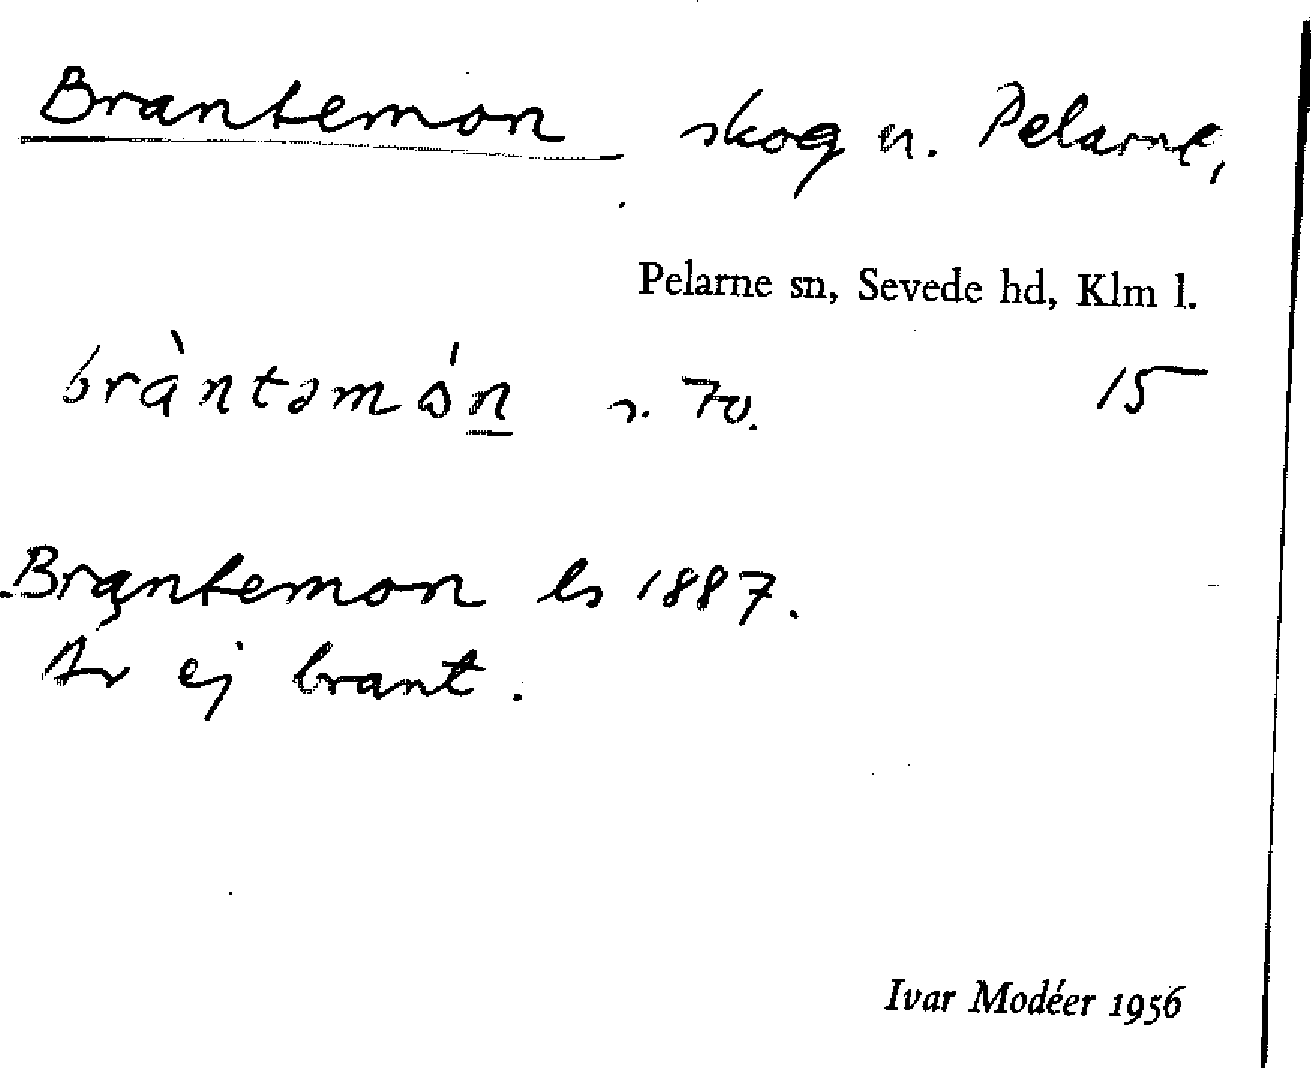 Brantemon skog n. Pelarne,
Pelarne sn, Sevede hd, Klm l.
bràntəmón s. 70. 15
Brantemon ls 1887.
Är ej brant.
Ivar Modéer 1956